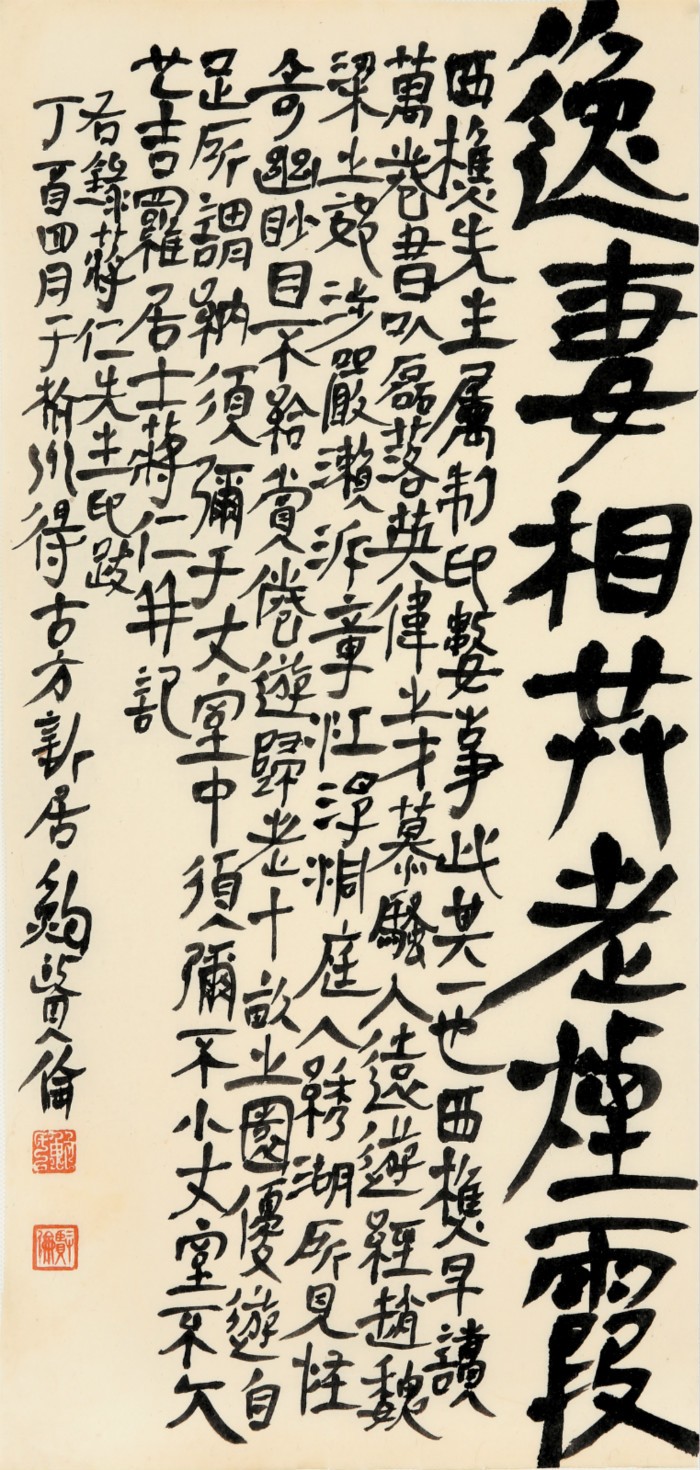 逸妻相共老煙霞
西樵先生屬制印數事此其一也西樵早讀
萬卷書以磊落英偉之才慕騷人遠遊經趙魏
梁之郊涉嚴瀨泝章江浮洞庭入綉湖所見怪
奇幽眇目不給賞倦遊歸老十畝之園優遊自
足所謂納須彌于丈室中須彌不小丈室不大
吉羅居士蔣仁并記
右錄蔣仁先生印跋
丁酉四月于州得古方新居賢倫